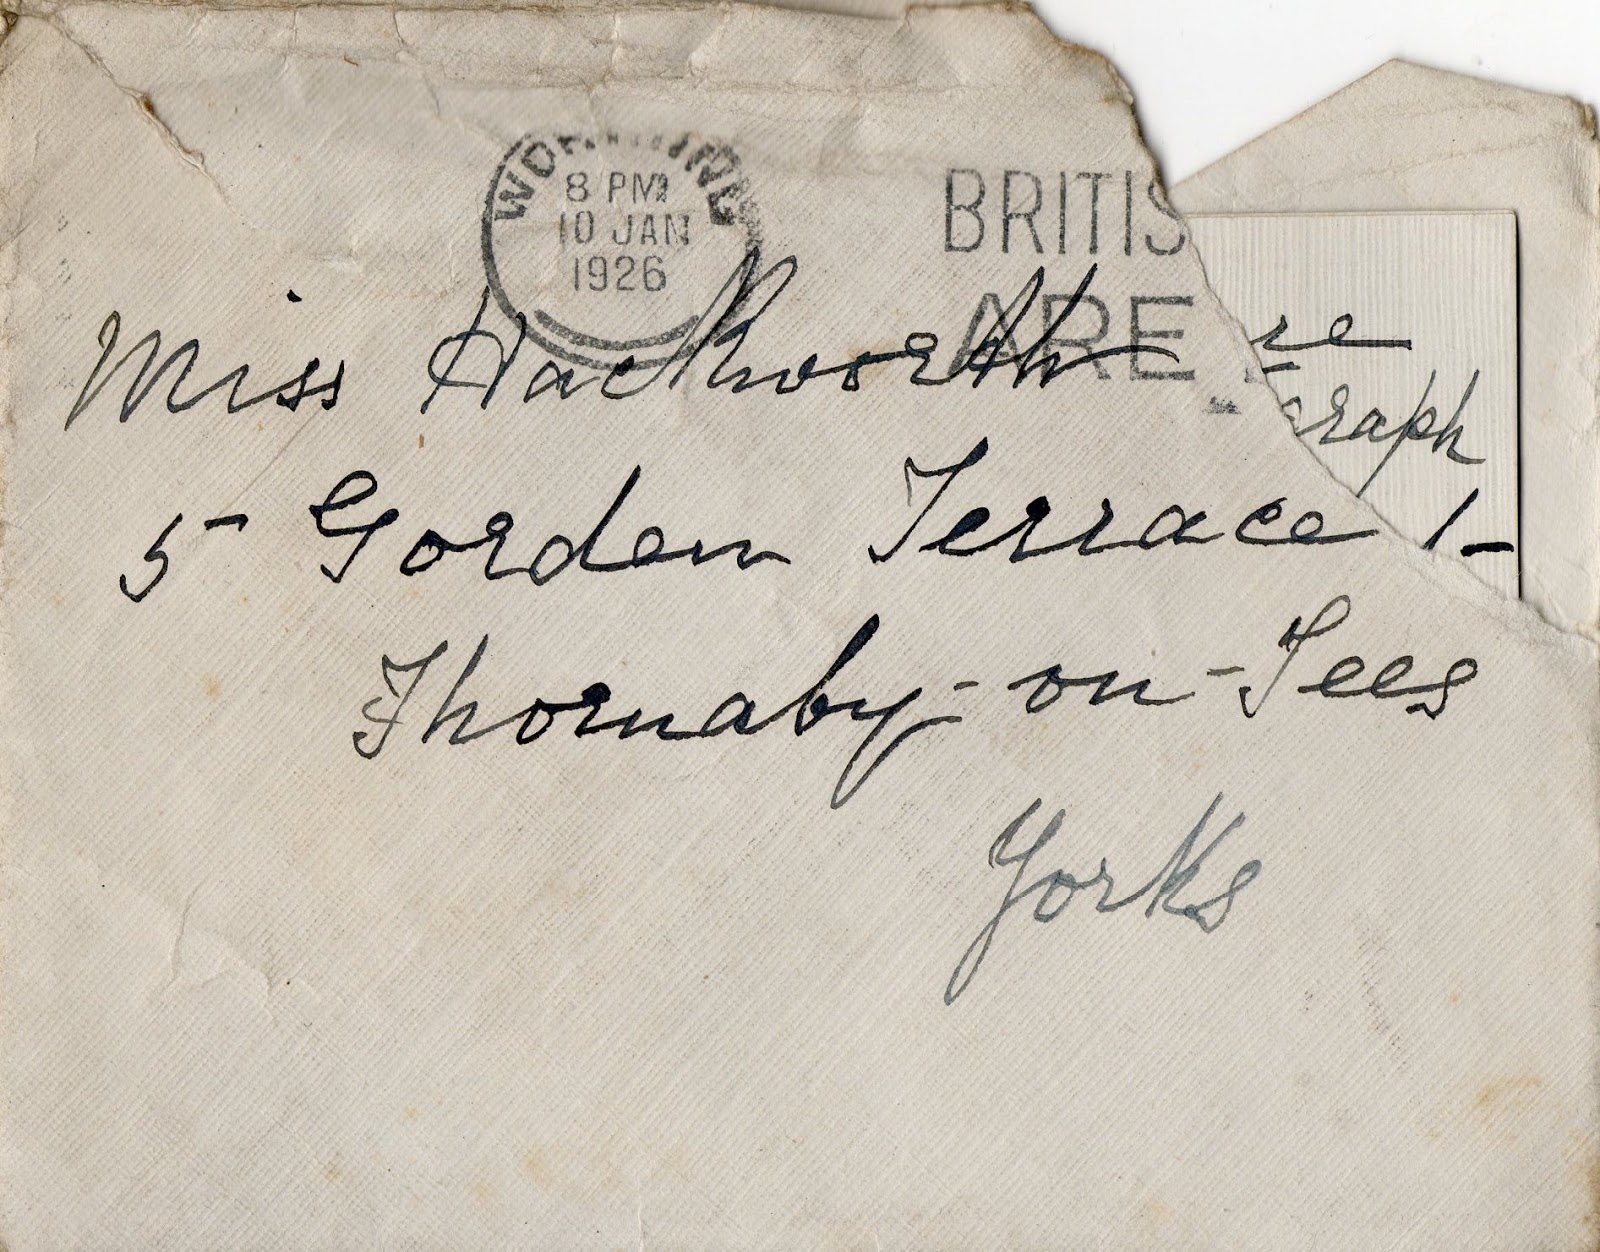 8 PM
10 JAN
1926
BRITIS
ARE
Miss Hackworth
5 Gorden Terrace
Thornaby-on-Tees
Yorks
re
graph
1-